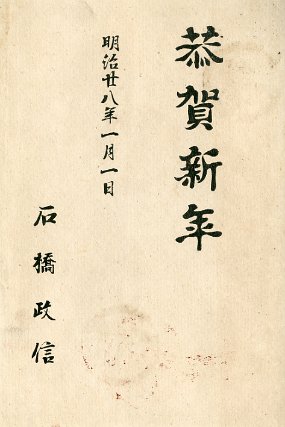 恭賀新年
明治廿八年一月一日
石橋政信